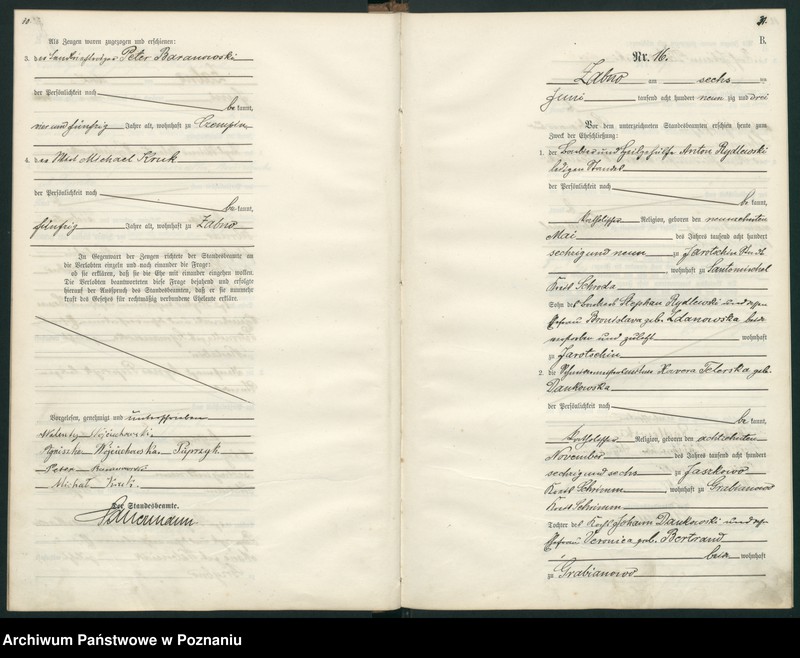 30.
Als Zeugen waren zugezogen und erschienen:
3. der Peter Baranowski
der Persönlichkeit nach
be kannt,
vier und fünfzig Jahre alt, wohnhaft zu Czempin
4. der Wirt Michael Kruk
der Persönlichkeit nach
be kannt,
fünfzig Jahre alt, wohnhaft zu Zabno
In Gegenwart der Zeugen richtete der Standesbeamte an
die Verlobten einzeln und nach einander die Frage:
ob sie erklären, daß sie die Ehe mit einander eingehen wollen.
Die Verlobten beantworteten diese Frage bejahend und erfolgte
hierauf der Ausspruch des Standesbeamten, daß er sie nunmehr
kraft des Gesetzes für rechtmäßig verbundene Eheleute erkläre.
Vorgelesen, genehmigt und unterschrieben
Walenty Wojciechowski
Agnischa Wojciechowska Puprzyk
Peter Baranowski
Michał Kruk
Der Standesbeamte.
31.
B.
Nr. 16.
Zabno am sechs ten
Juni tausend acht hundert neun zig und drei
Vor dem unterzeichneten Standesbeamten erschien heute zum
Zweck der Eheschließung:
1. der Barbier und Heilgehülfe Anton Rydlewski
ledigen Standes
der Persönlichkeit nach
be kannt,
katholischer Religion, geboren den neunzehnten
Mai des Jahres tausend acht hundert
sechzig und neun zu Jarotschin
, wohnhaft zu Santomischel
Kreis Schroda
Sohn des Stephan Rydlewski und dessen
Ehefrau Bronislava geb. Zdanowska beide
und zuletzt wohnhaft
zu Jarotschin
2. die Xavera Telerska geb.
Dankowska
der Persönlichkeit nach
be kannt,
katholischer Religion, geboren den achtzehnten
November des Jahres tausend acht hundert
sechzig und sechs zu Jaszkowo
Kreis Schrimm, wohnhaft zu Grabianowo
Kreis Schrimm
Tochter des Johann Dankowski und
Ehefrau Veronica geb. Bertrand
beide wohnhaft
zu Grabianowo
Archiwum Państwowe w Poznaniu